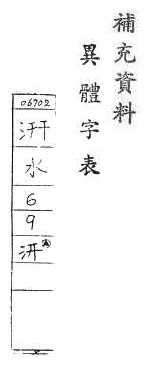 補充資料
異體字表
06702
汧
水
6
9